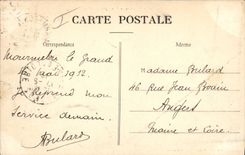 CARTE POSTALE
Correspondance
Adresse
Mourmelon le Grand
1 Mai 1912.
Je Reprend mon
Service demain.
ABulard
Madame Boulard
46 Rue Jean Bodin
Angers
Maine et Loire.